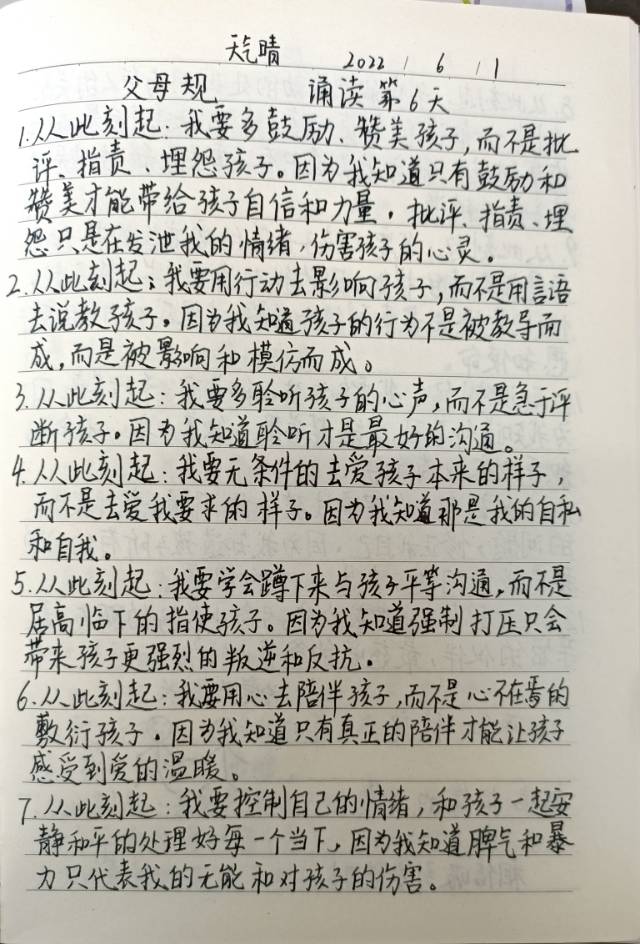 天气晴 2022 / 6 / 1
父母规 诵读第6天
1.从此刻起：我要多鼓励、赞美孩子,而不是批
评、指责、埋怨孩子。因为我知道只有鼓励和
赞美才能带给孩子自信和力量。批评、指责、埋
怨只是在发泄我的情绪,伤害孩子的心灵。
2.从此刻起：我要用行动去影响孩子,而不是用言语
去说教孩子。因为我知道孩子的行为不是被教导而
成,而是被影响和模仿而成。
3.从此刻起：我要多聆听孩子的心声,而不是急于评
断孩子。因为我知道聆听才是最好的沟通。
4.从此刻起：我要无条件的去爱孩子本来的样子,
而不是去爱我要求的样子。因为我知道那是我的自私
和自我。
5.从此刻起：我要学会蹲下来与孩子平等沟通,而不是
居高临下的指使孩子。因为我知道强制打压只会
带来孩子更强烈的叛逆和反抗。
6.从此刻起：我要用心去陪伴孩子,而不是心不在焉的
敷衍孩子。因为我知道只有真正的陪伴才能让孩子
感受到爱的温暖。
7.从此刻起：我要控制自己的情绪,和孩子一起安
静和平的处理好每一个当下,因为我知道脾气和暴
力只代表我的无能和对孩子的伤害。